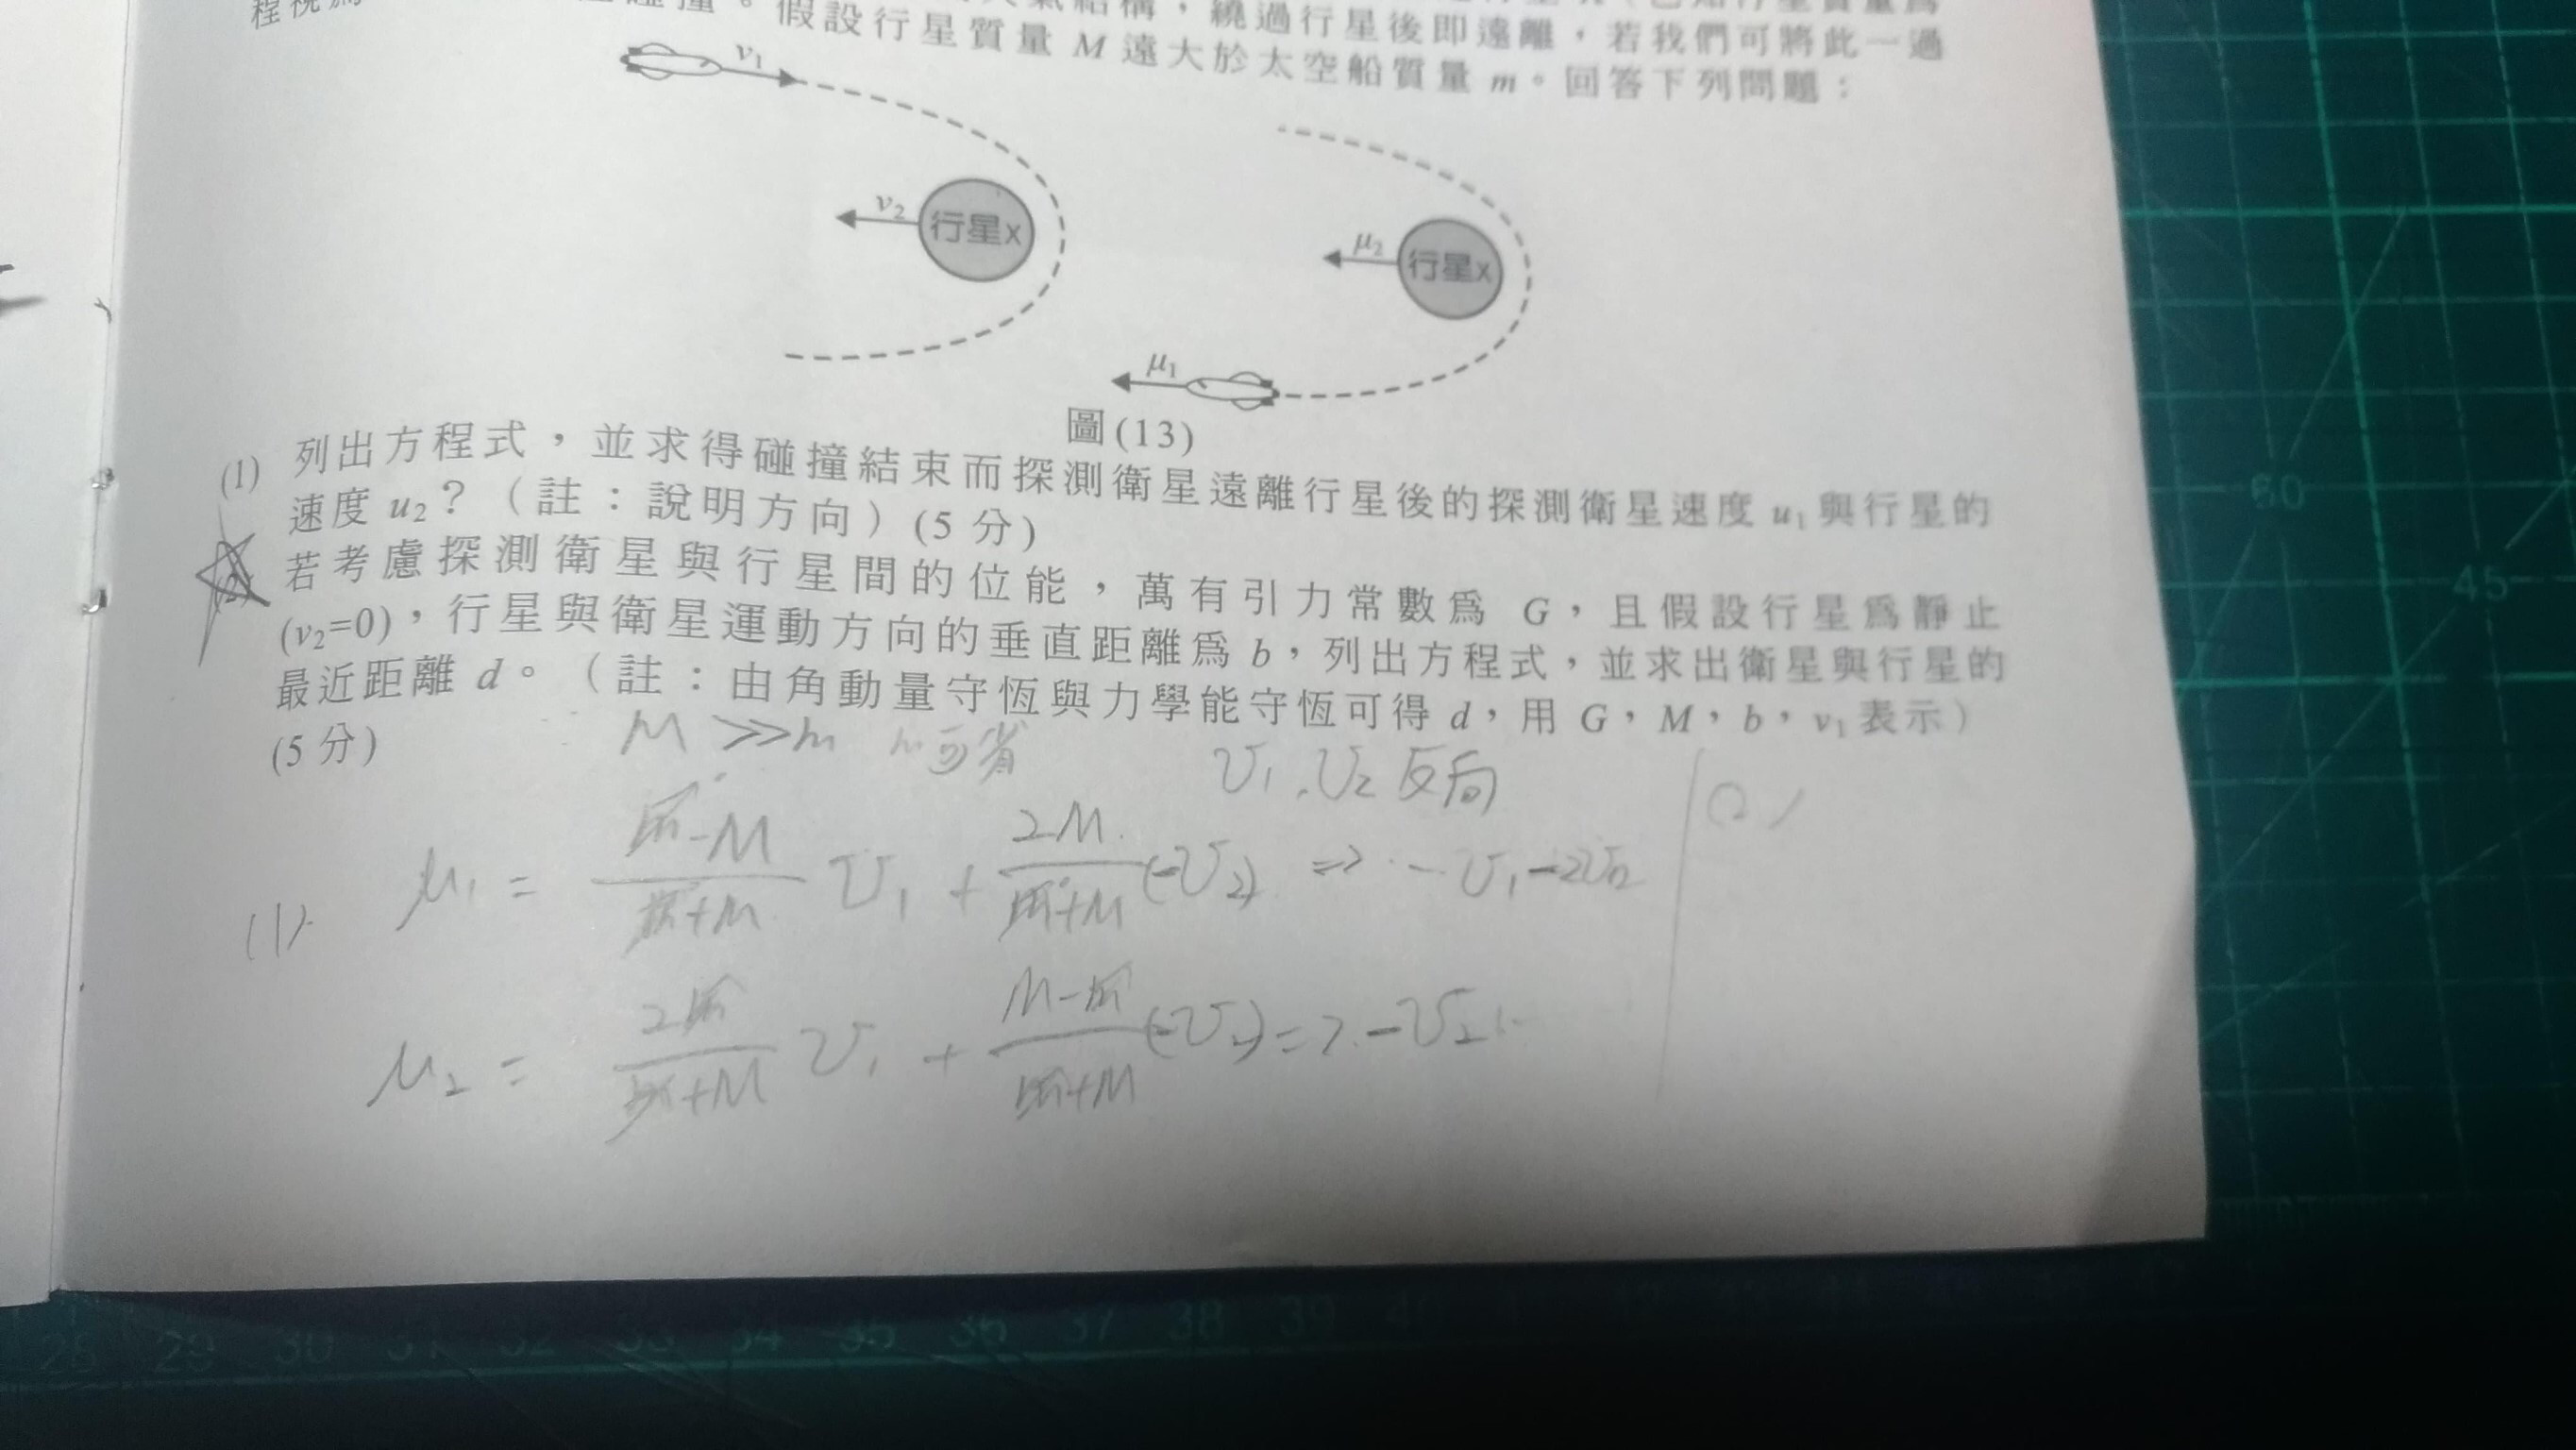 程視為
碰撞。假設行星質量 M 遠大於太空船質量 m。回答下列問題:
結構,繞過行星後即遠離,若我們可將此一過
v₁
v₂
行星x
μ₂
行星x
μ₁
圖(13)
(1) 列出方程式,並求得碰撞結束而探測衛星遠離行星後的探測衛星速度 u₁ 與行星的
速度 u₂?(註:說明方向)(5 分)
(2) 若考慮探測衛星與行星間的位能,萬有引力常數為 G,且假設行星為靜止
(v₂=0),行星與衛星運動方向的垂直距離為 b,列出方程式,並求出衛星與行星的
最近距離 d。(註:由角動量守恆與力學能守恆可得 d,用 G,M,b,v₁ 表示)
(5 分)
M >> m m可省
v₁, v₂ 反向
(1) μ₁ = (m-M)/(m+M) v₁ + 2M/(m+M) (-v₂) => -v₁-2v₂
(2)
μ₂ = 2m/(m+M) v₁ + (M-m)/(m+M) (-v₂) => -v₂
60
45
28 29 30 31 32 33 34 35 36 37 38 39